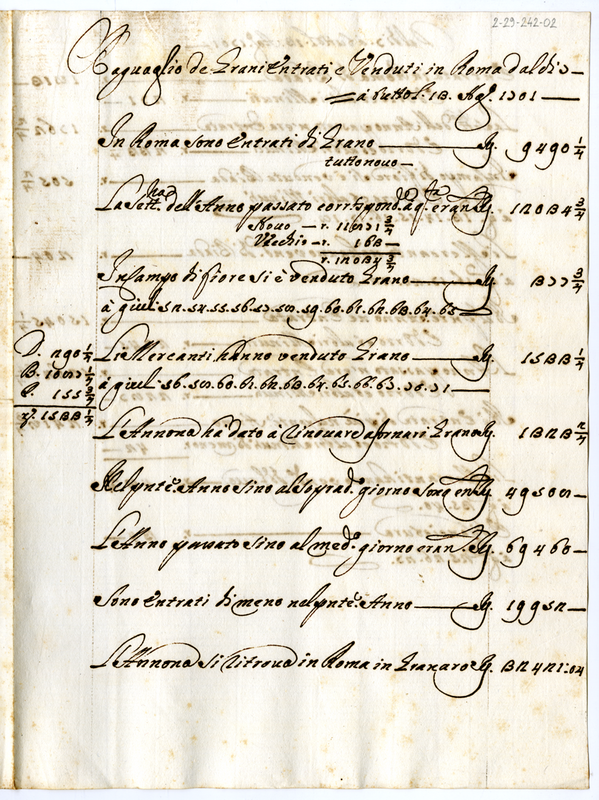 2-29-242-02
Raguaglio de Grani Entrati, e Venduti in Roma dal dì 7—
à tutto li 13. Ag.º 1701—
In Roma sono entrati di Grano — Rg. 9490 1/4
tutto nouo—
La Sett.na dell'Anno passato corrispond.te à q.ta eran Rg. 12034 3/4
Nouo — r. 11871 3/4
Vecchio — r. 163—
r. 12034 3/4
In Campo di fiore si è venduto Grano — Rg. 377 3/4
à giuli 52.54.55.56.57.58.59.60.61.62.63.64.65—
D. 290 1/4
Li Mercanti hanno venduto Grano — Rg. 1533 1/4
B. 1087 1/4
à giuli 56.58.60.61.62.63.64.65.66. 70.71—
P. 155 3/4
r. 1533 1/4
L'Annona há dato à rinouare a fornari Grano Rg. 1323 2/4
Nel pnte. Anno sino al soprad.º giorno sono en. Rg. 49508—
L'Anno passato sino al med.º giorno eran. Rg. 69460—
Sono entrati di meno nel pnte. Anno — Rg. 19952—
L'Annona si ritroua in Roma in Granaro Rg. 32421:04